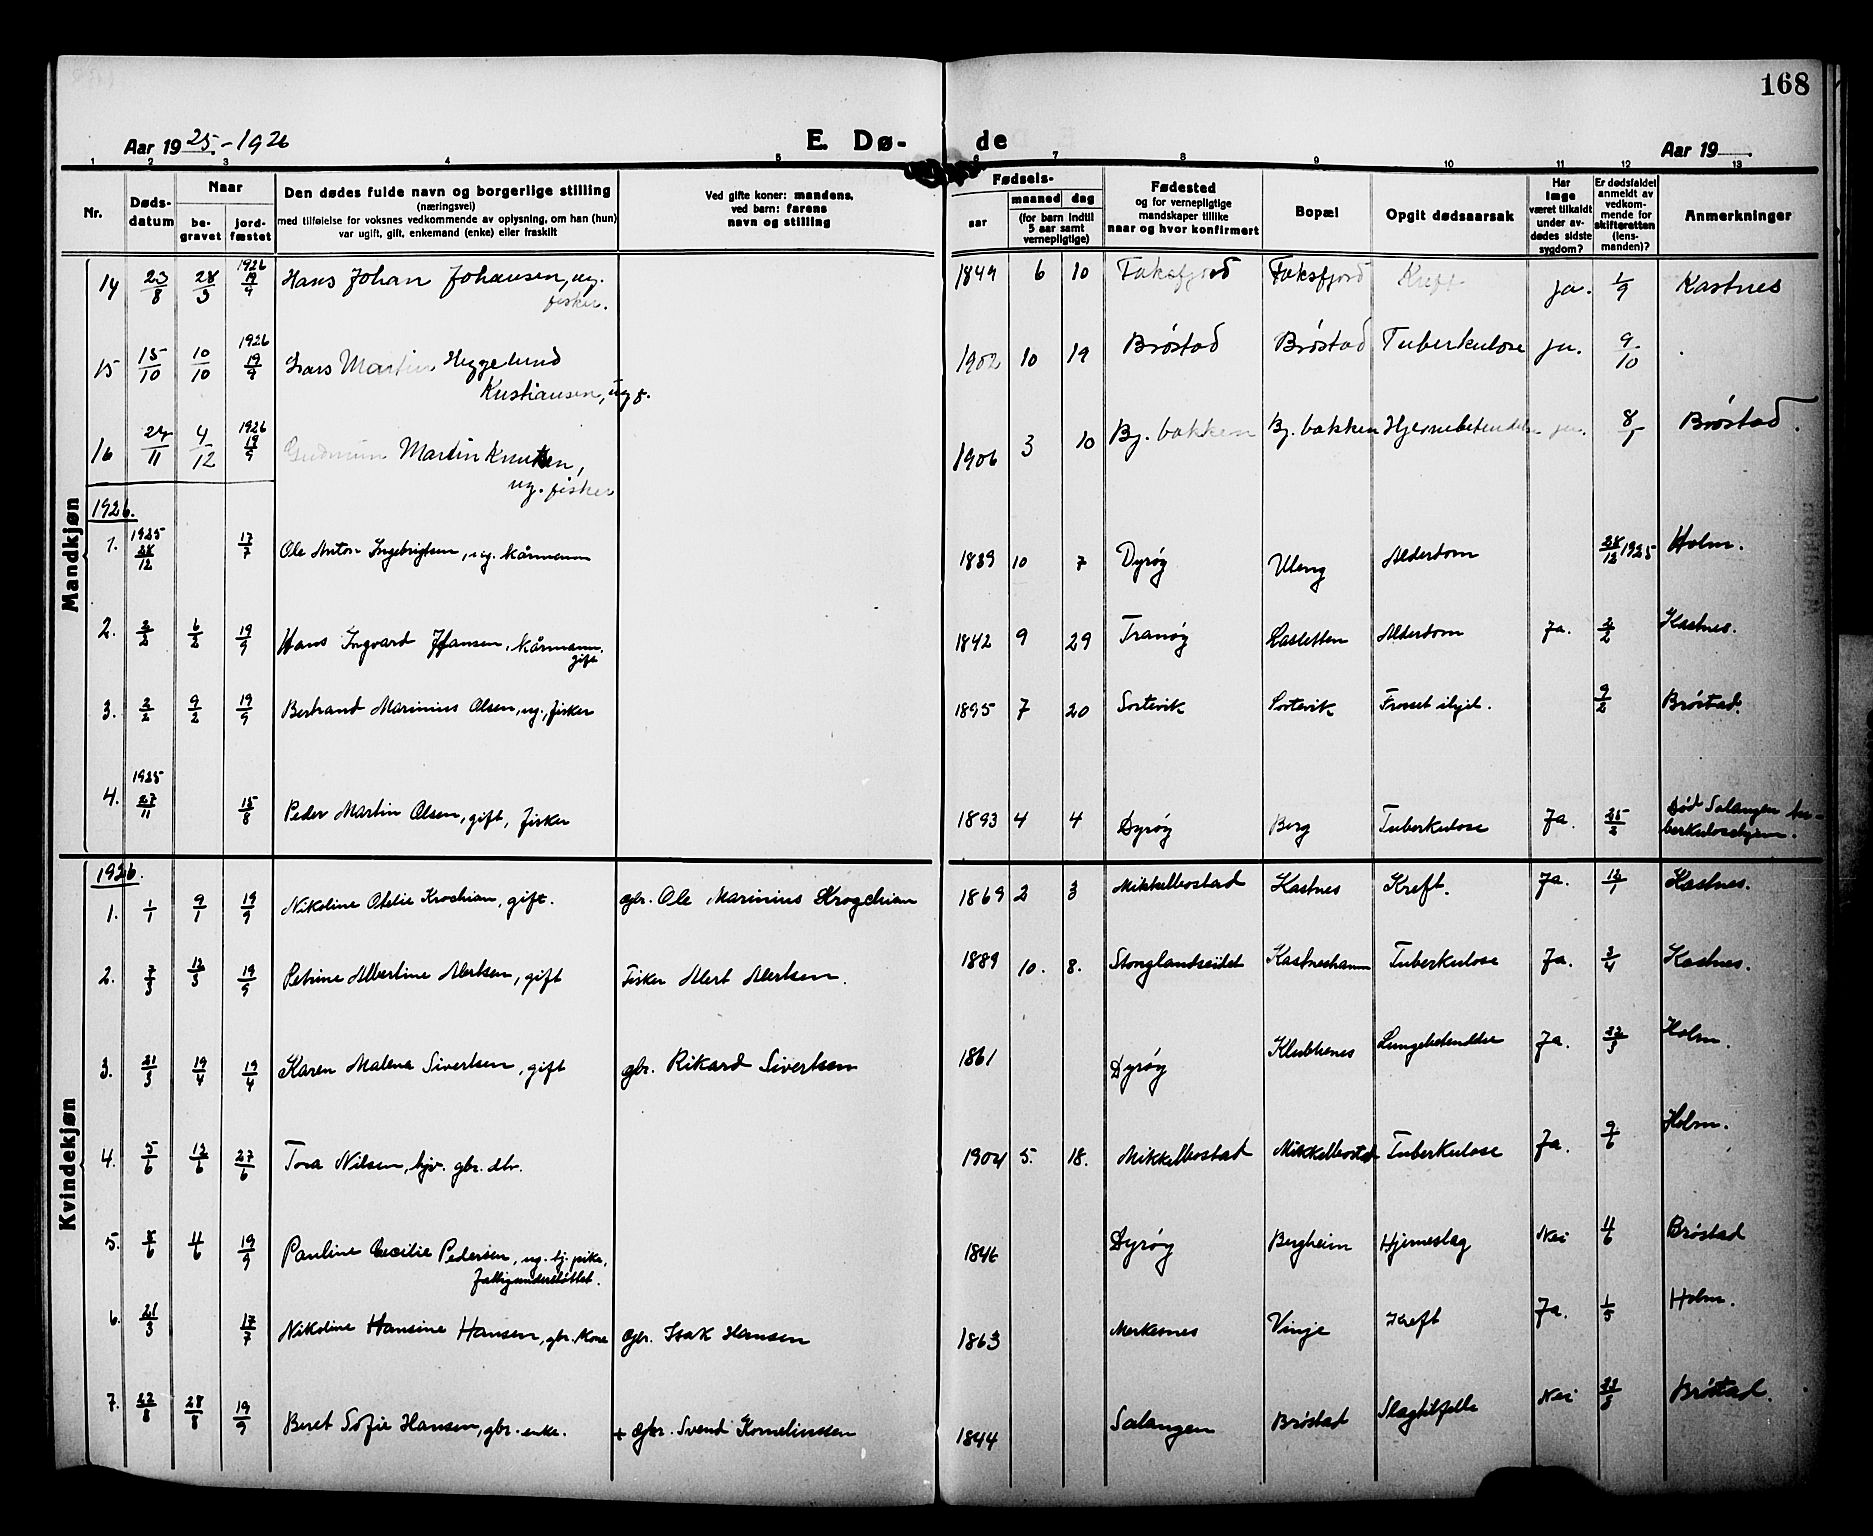 168
Aar 1925.-1926
E. Dø-
de
Aar 19
1 2 3 4 5 6 7 8 9 10 11 12 13
Nr.
Døds-
datum
Naar
be-
gravet
jord-
fæstet
Den dødes fulde navn og borgerlige stilling
(næringsvei)
med tilføielse for voksnes vedkommende av oplysning, om han (hun)
var ugift, gift, enkemand (enke) eller fraskilt
Ved gifte koner: mandens,
ved barn: farens
navn og stilling
Fødsels-
aar
maaned dag
(for barn indtil
5 aar samt
vernepligtige)
Fødested
og for vernepligtige
mandskaper tillike
naar og hvor konfirmert
Bopæl
Opgit dødsaarsak
Har
læge
været tilkaldt
under av-
dødes sidste
sygdom?
Er dødsfaldet
anmeldt av
vedkom-
mende for
skifteretten
(lens-
manden)?
Anmerkninger
Mandkjøn
14 23/8 28/3 1926 19/9 Hans Johan Johansen, ug. fisker. 1849 6 10 Faksfjord Faksfjord Kreft ja. 1/9 Kastnes
15 15/10 10/10 1926 19/9 Lars Martin Heggelund
Kristiansen, ug f. 1902 10 19 Brøstad Brøstad Tuberkulose ja. 9/10
16 24/11 4/12 1926 19/9 Gudmun Martin Knutsen,
ug. fisker 1906 3 10 Bj. bakken Bj. bakken Hjernebetendelse ja. 8/1 Brøstad.
1926.
1. 1925 28/12 17/7 Ole Anton Ingebrigtsen, ug. kårmann 1839 10 7 Dyrøy Uleng Alderdom 28/12 1925 Holm.
2. 2/2 6/2 19/9 Hans Ingvard Hansen, kårmann.
gift 1842 9 29 Tranøy Lasletten Alderdom Ja. 2/2 Kastnes.
3. 2/2 9/2 19/9 Bertrand Marinius Olsen, ug., fisker 1895 7 20 Sortvik Sortvik Frosset ihjel. 9/2 Brøstad.
4. 1925 27/11 15/8 Peder Martin Olsen, gift, fisker 1893 4 4 Dyrøy Berg Tuberkulose Ja. 25/2 Død Salangen tu-
berkulosehjem.
Kvindekjøn
1926.
1. 1/1 9/1 19/9 Nikoline Otelie Krochian, gift. gbr. Ole Marinius Krogchian 1869 2 3 Mikkelbostad Kastnes Kreft. Ja. 12/1 Kastnes.
2. 7/3 12/3 19/9 Petrine Albertine Alertsen, gift Fisker Alert Alertsen. 1889 10. 8. Stonglandseidet Kastneshamn Tuberkulose Ja. 3/4 Kastnes.
3. 21/3 19/4 19/4 Karen Malena Sivertsen, gift gbr. Rikard Sivertsen 1861 Dyrøy Klubbenes Lungebetendelse Ja. 22/3 Holm.
4. 5/6 12/6 27/6 Tora Nilsen, hjv. gbr. dtr. 1904 5. 18. Mikkelbostad Mikkelbostad Tuberkulose Ja. 9/6 Holm.
5. 5/6 11/6 19/9 Pauline Cecilie Pedersen, ug. tj. pike,
fattigunderstøttet. 1846 Dyrøy Bergheim Hjerneslag Nei 11/6 Brøstad
6. 21/3 17/7 Nikoline Hansine Hansen, gbr. kone gbr. Isak Hansen 1863 Merkesnes Vinje Kreft Ja. 1/5 Holm.
7. 22/8 28/8 19/9 Beret Sofie Hansen, gbr. enke. + gbr. Svend Kornelinssen 1844 Salangen Brøstad Slagtilfelle Nei 23/8 Brøstad.